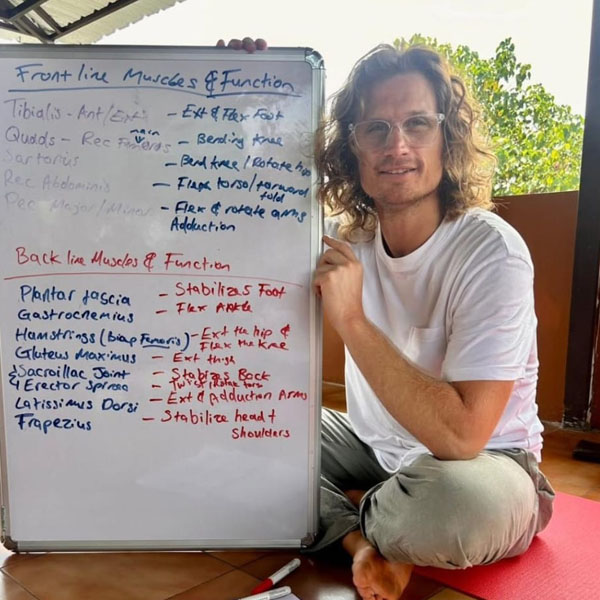 Front line Muscles & Function
Tibialis - Ant/Ext - Ext & Flex Foot
main
Quads - Rec Femoros - Bending knee
Sartorius - Bend knee / Rotate hip
Rec Abdominis - Flex torso/forward
fold
Pec Major/Minor - Flex & rotate arms
Adduction
Back line Muscles & Function
Plantar fascia - Stabilizes Foot
Gastrocnemius - Flex Ankle
Hamstrings (bicep Femoris) - Ext the hip &
Flex the knee
Gluteus Maximus - Ext thigh
Sacroillac Joint - Stabizes Back
& Erector Spinea
Latissimus Dorsi - Ext & Adduction Arms
Trapezius - Stabilize head &
Shoulders